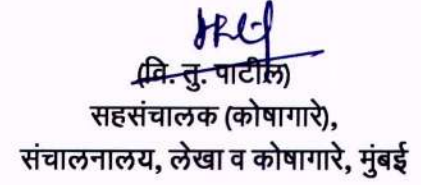 (वि. तु. पाटील)
सहसंचालक (कोषागारे),
संचालनालय, लेखा व कोषागारे, मुंबई